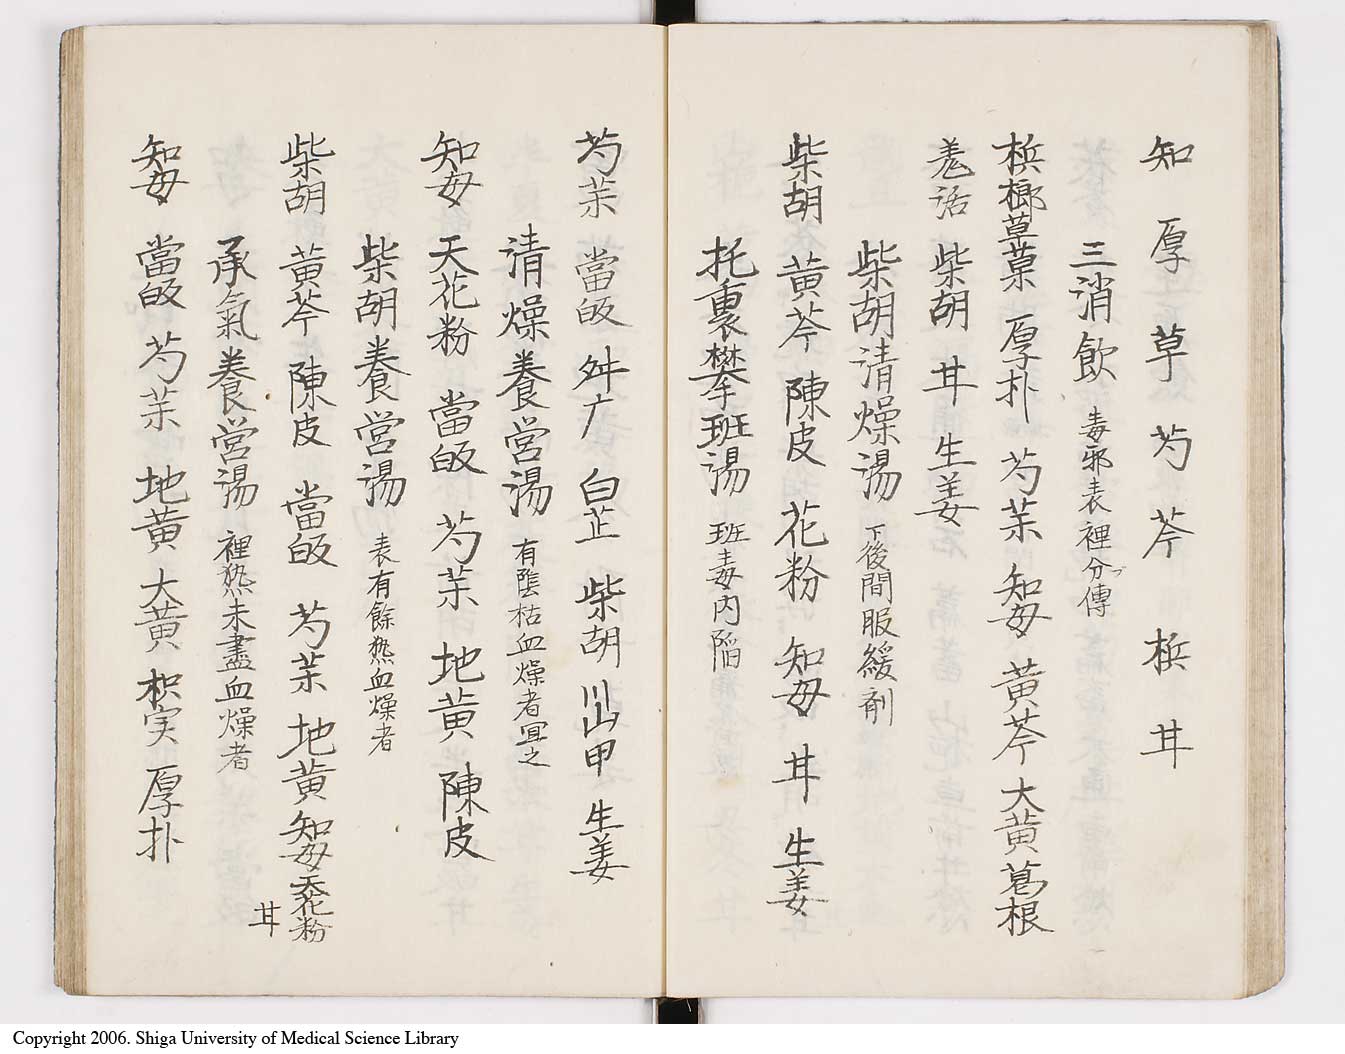 知 厚 草 芍 芩 梹 甘
三消飲 毒邪表裡分ヅ傳
梹榔 草菓 厚朴 芍茱 知母 黄芩 大黄 葛根
羗活 柴胡 甘 生姜
柴胡清燥湯 下後間服緩剤
柴胡 黄芩 陳皮 花粉 知母 甘 生姜
托裏攀班湯 班毒内陷
芍茱 當皈 舛广 白芷 柴胡 川山甲 生姜
清燥養営湯 有陰枯血燥者宜之
知母 天花粉 當皈 芍茱 地黄 陳皮
柴胡養営湯 表有餘热血燥者
柴胡 黄芩 陳皮 當皈 芍茱 地黄 知母 天花粉 甘
承氣養営湯 裡热未盡血燥者
知母 當皈 芍茱 地黄 大黄 枳实 厚朴
Copyright 2006. Shiga University of Medical Science Library